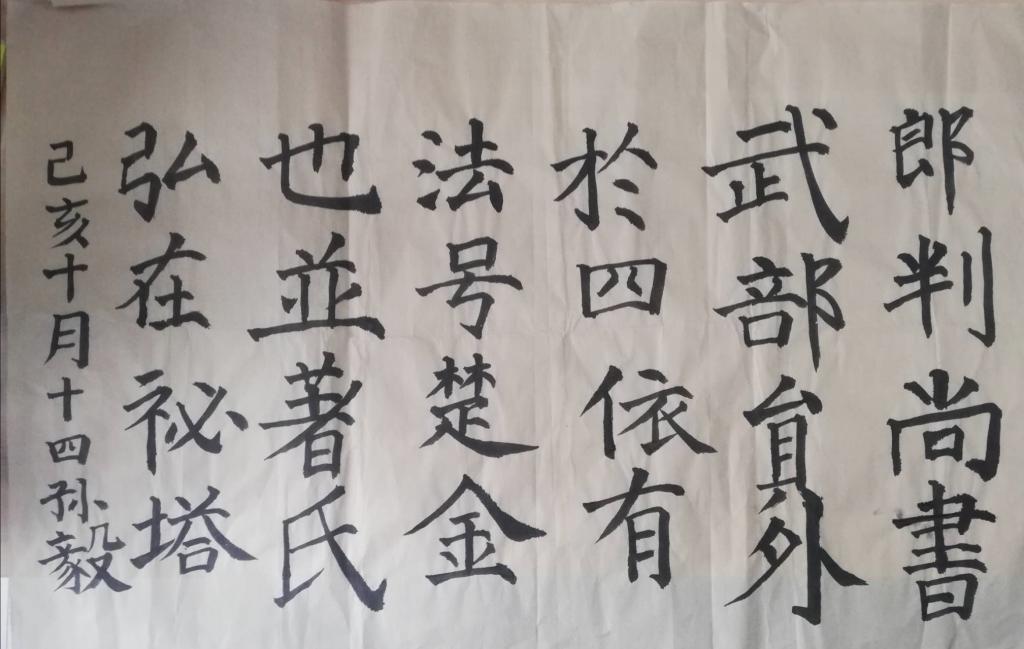 郎判尚書
武部貟外
於四依有
法号楚金
也並著氏
弘在祕塔
己亥十月十四孙毅